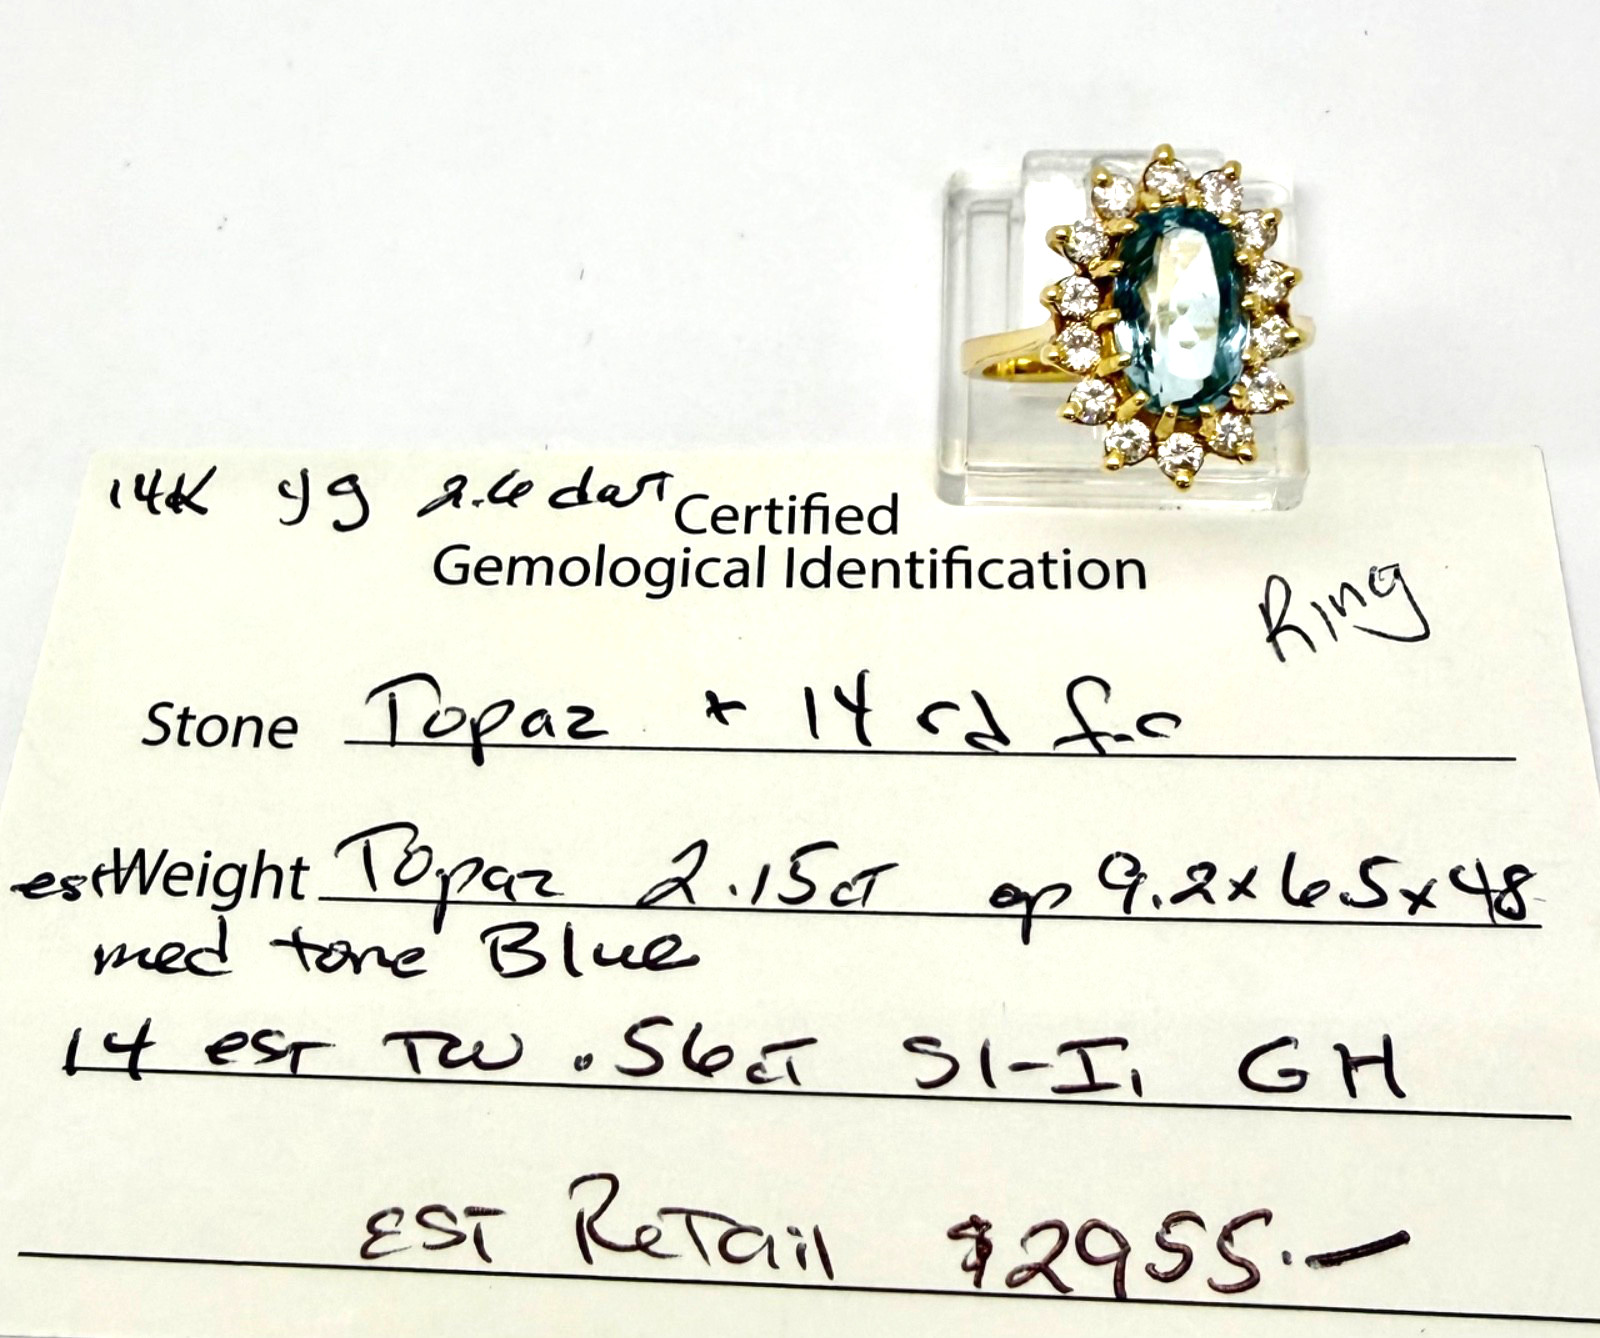 14K yg 2.6 dwt Certified
Gemological Identification
Ring
Stone Topaz + 14 rd f.c
est Weight Topaz 2.15ct ap 9.2x6.5x48
med tone Blue
14 est TW .56ct SI-I1 GH
EST Retail $2955.—